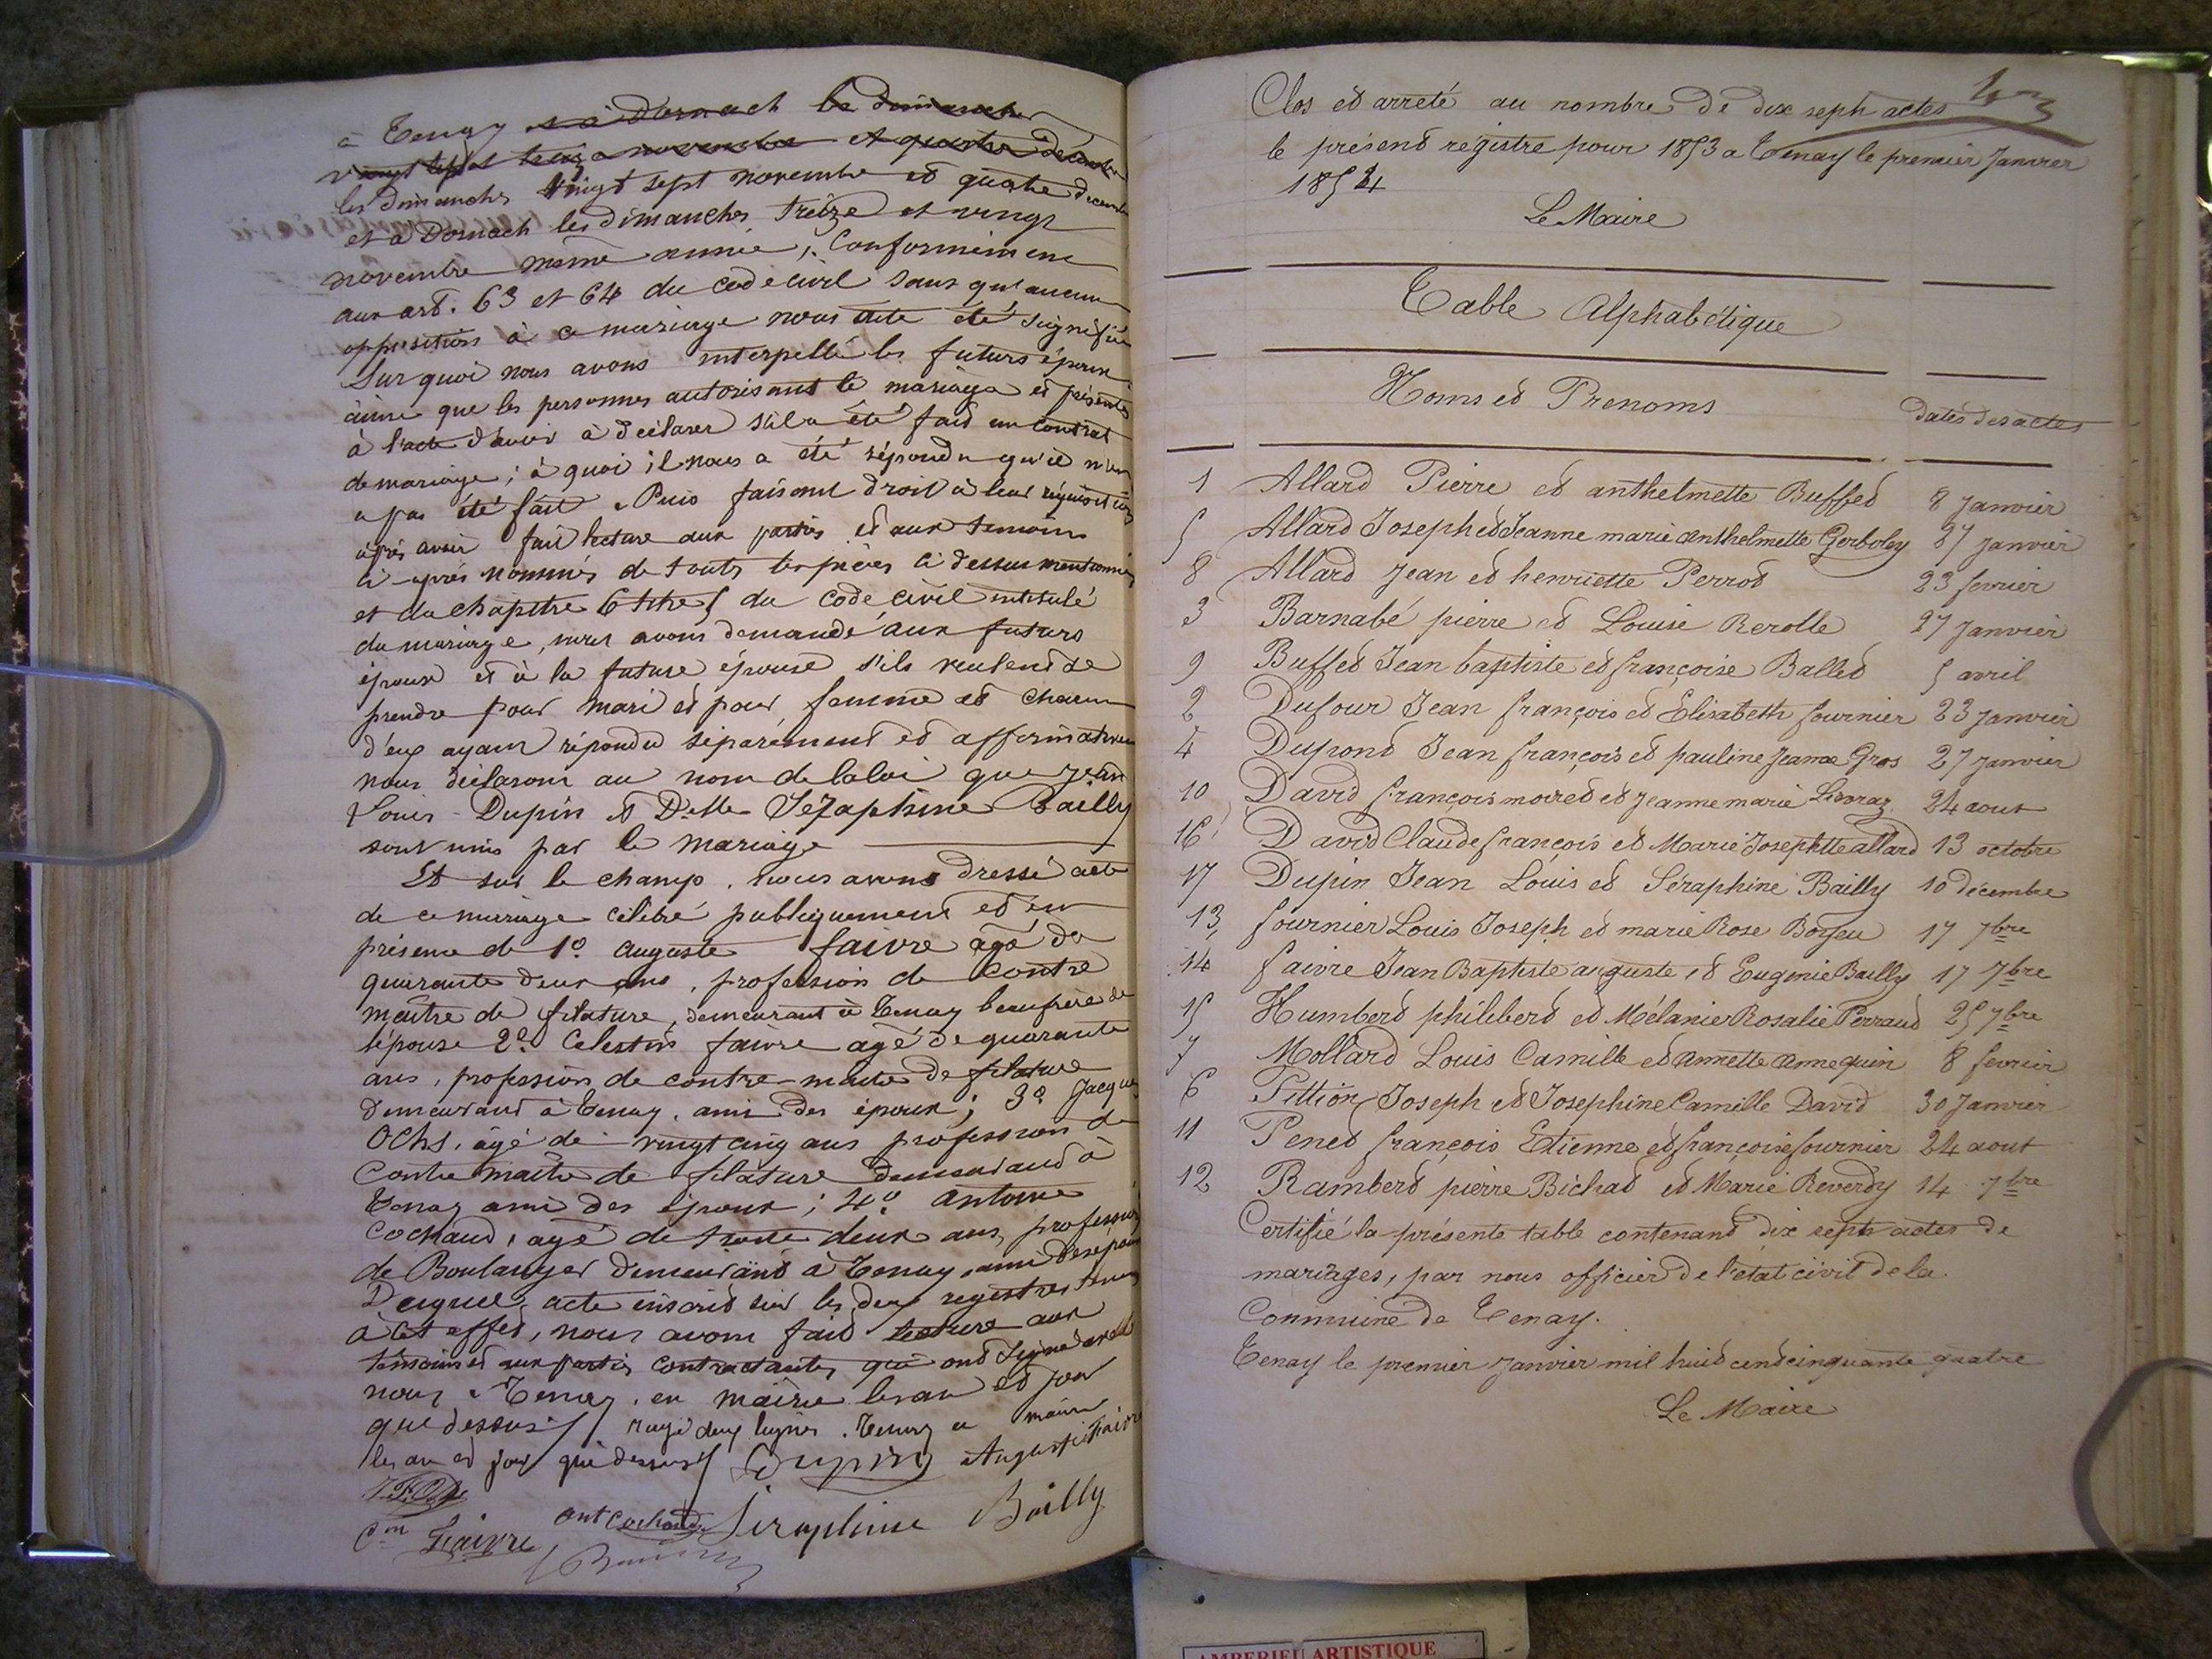 à Tenay et à Dornach le dimanche
vingt sept novembre et quatre décembre
les dimanches vingt sept novembre et quatre decembre
et à Dornach les dimanches treize et vingt
novembre même année, Conformément
aux art. 63 et 64 du code civil sans qu'aucune
opposition à ce mariage nous ait été signifiée
Sur quoi nous avons interpellé les futurs époux
ainsi que les personnes autorisant le mariage et présentes
à l'acte d'avoir à déclarer s'il a été fait un contrat
de mariage; à quoi il nous a été répondu qu'il n'en
a pas été fait. Puis faisant droit à leur réquisition
après avoir fait lecture aux parties et aux temoins
ci-après nommés de toutes les pièces ci dessus mentionnées
et du chapitre 6 titre 5 du code civil intitulé
du mariage, nous avons demandé aux futurs
époux et à la future épouse s'ils veulent se
prendre pour mari et pour femme et chacun
d'eux ayant répondu séparément et affirmativement
nous déclarons au nom de la loi que Jean
Louis Dupin et Delle Séraphine Bailly
sont unis par le mariage
Et sur le champ, nous avons dressé acte
de ce mariage célébré publiquement et en
présence de 1º auguste faivre agé de
quarante deux ans, profession de contre
maître de filature, demeurant à Tenay beaufrère de
l'épouse 2º Celestin faivre agé de quarante
ans, profession de contre-maitre de filature
demeurant à Tenay, ami des époux; 3º Jacques
Ochs, âgé de vingt cinq ans profession de
Contre maître de filature demeurant à
Tenay ami des époux; 4º antoine
Cochaud, agé de trente deux ans, profession
de Boulanger demeurant à Tenay, ami des époux
Duquel acte inscrit sur les deux registres tenus
à cet effet, nous avons fait lecture aux
témoins et aux parties contractantes qui ont signé avec
nous à Tenay, en mairie les an et jour
que dessus / rayé deux lignes. Tenay en mairie
les an et jour que dessus / Dupin Auguste Faivre
ant Cochaud Séraphine Bailly
Cin Faivre
Clos et arreté au nombre de dix sept actes
le présent régistre pour 1853 a Tenay le premier Janvier
1854
Le Maire
Table Alphabétique
Noms et Prenoms dates des actes
1 Allard Pierre et anthelmette Buffet 8 Janvier
5 Allard Joseph et Jeanne marie anthelmette Gerboley 27 Janvier
8 Allard Jean et henriette Perrot 23 fevrier
3 Barnabé pierre et Louise Rerolle 27 Janvier
9 Buffet Jean baptiste et françoise Ballet 5 avril
2 Dufour Jean françois et Elisabeth fournier 23 Janvier
4 Dupont Jean françois et pauline Jeanne Gros 27 Janvier
10 David françois moiret et Jeanne marie Livoraz 24 aout
16 David Claude françois et Marie Josephtte allard 13 octobre
17 Dupin Jean Louis et Séraphine Bailly 10 décembre
13 fournier Louis Joseph et marie Rose Bozeu 17 7bre
14 faivre Jean Baptiste auguste et Eugenie Bailly 17 7bre
15 Humbert philibert et Mélanie Rosalie Perraud 25 7bre
7 Mollard Louis Camille et annette annequin 8 fevrier
6 Pittion Joseph et Josephine Camille David 30 Janvier
11 Penet françois Etienne et françoise fournier 24 aout
12 Rambert pierre Bichat et Marie Reverdy 14 7bre
Certifié la présente table contenant dix sept actes de
mariages, par nous officier de l'état civil de la
Commune de Tenay.
Tenay le premier Janvier mil huit cent cinquante quatre
Le Maire
AMBERIEU ARTISTIQUE